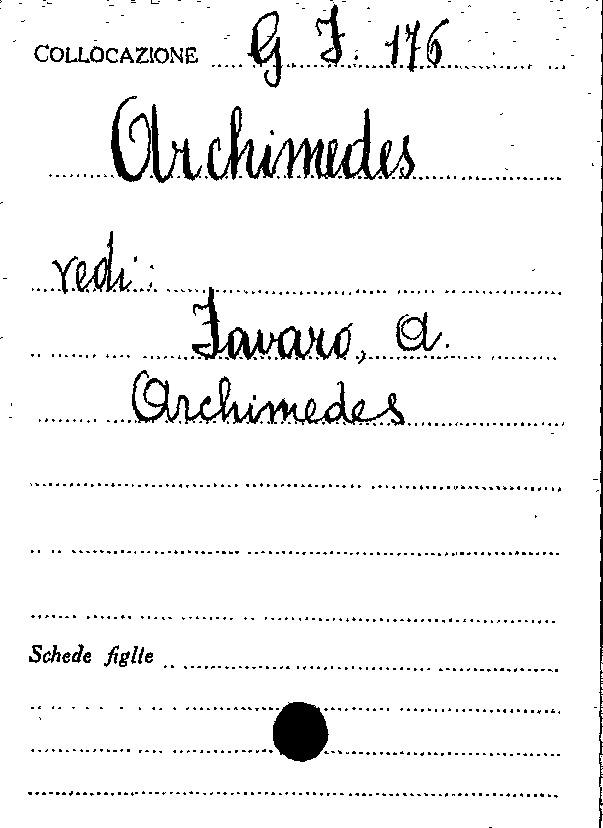 COLLOCAZIONE G F. 176
Archimedes
vedi:
Favaro, A.
Archimedes
Schede figlie